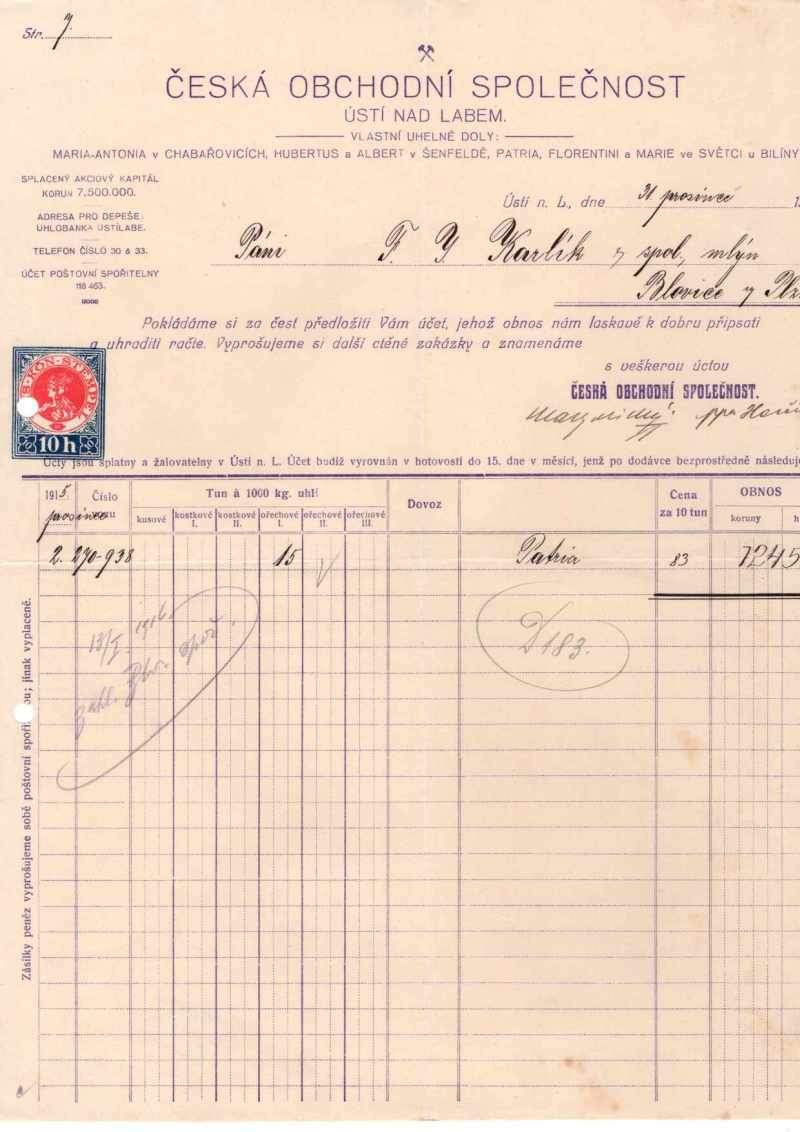 Str. 7.
ČESKÁ OBCHODNÍ SPOLEČNOST
ÚSTÍ NAD LABEM.
VLASTNÍ UHELNÉ DOLY:
MARIA-ANTONIA v CHABAŘOVICÍCH, HUBERTUS a ALBERT v ŠENFELDĚ, PATRIA, FLORENTINI a MARIE ve SVĚTCI u BILÍNY
SPLACENÝ AKCIOVÝ KAPITÁL
KORUN 7,500.000.
ADRESA PRO DEPEŠE:
UHLOBANKA ÚSTÍLABE.
TELEFON ČÍSLO 30 & 33.
ÚČET POŠTOVNÍ SPOŘITELNY
118 463.
Ústí n. L., dne 31 prosince 1
Páni F. Y Karlík y spol. mlýn
Blovice y Plz
Pokládáme si za čest předložiti Vám účet, jehož obnos nám laskavě k dobru připsati
a uhraditi račte. Vyprošujeme si další ctěné zakázky a znamenáme
s veškerou úctou
ČESKÁ OBCHODNÍ SPOLEČNOST.
10 h
Účty jsou splatny a žalovatelny v Ústí n. L. Účet budiž vyrovnán v hotovosti do 15. dne v měsíci, jenž po dodávce bezprostředně následuje
1915 Číslo Tun à 1000 kg. uhlí Dovoz Cena OBNOS
prosince kusové kostkové I. kostkové II. ořechové I. ořechové II. ořechové III. za 10 tun koruny h
2. 270-938 15 Patria 83 1245
13/I. 1916.
D 183.
Zásilky peněz vyprošujeme sobě poštovní spoř ou; jinak vyplaceně.